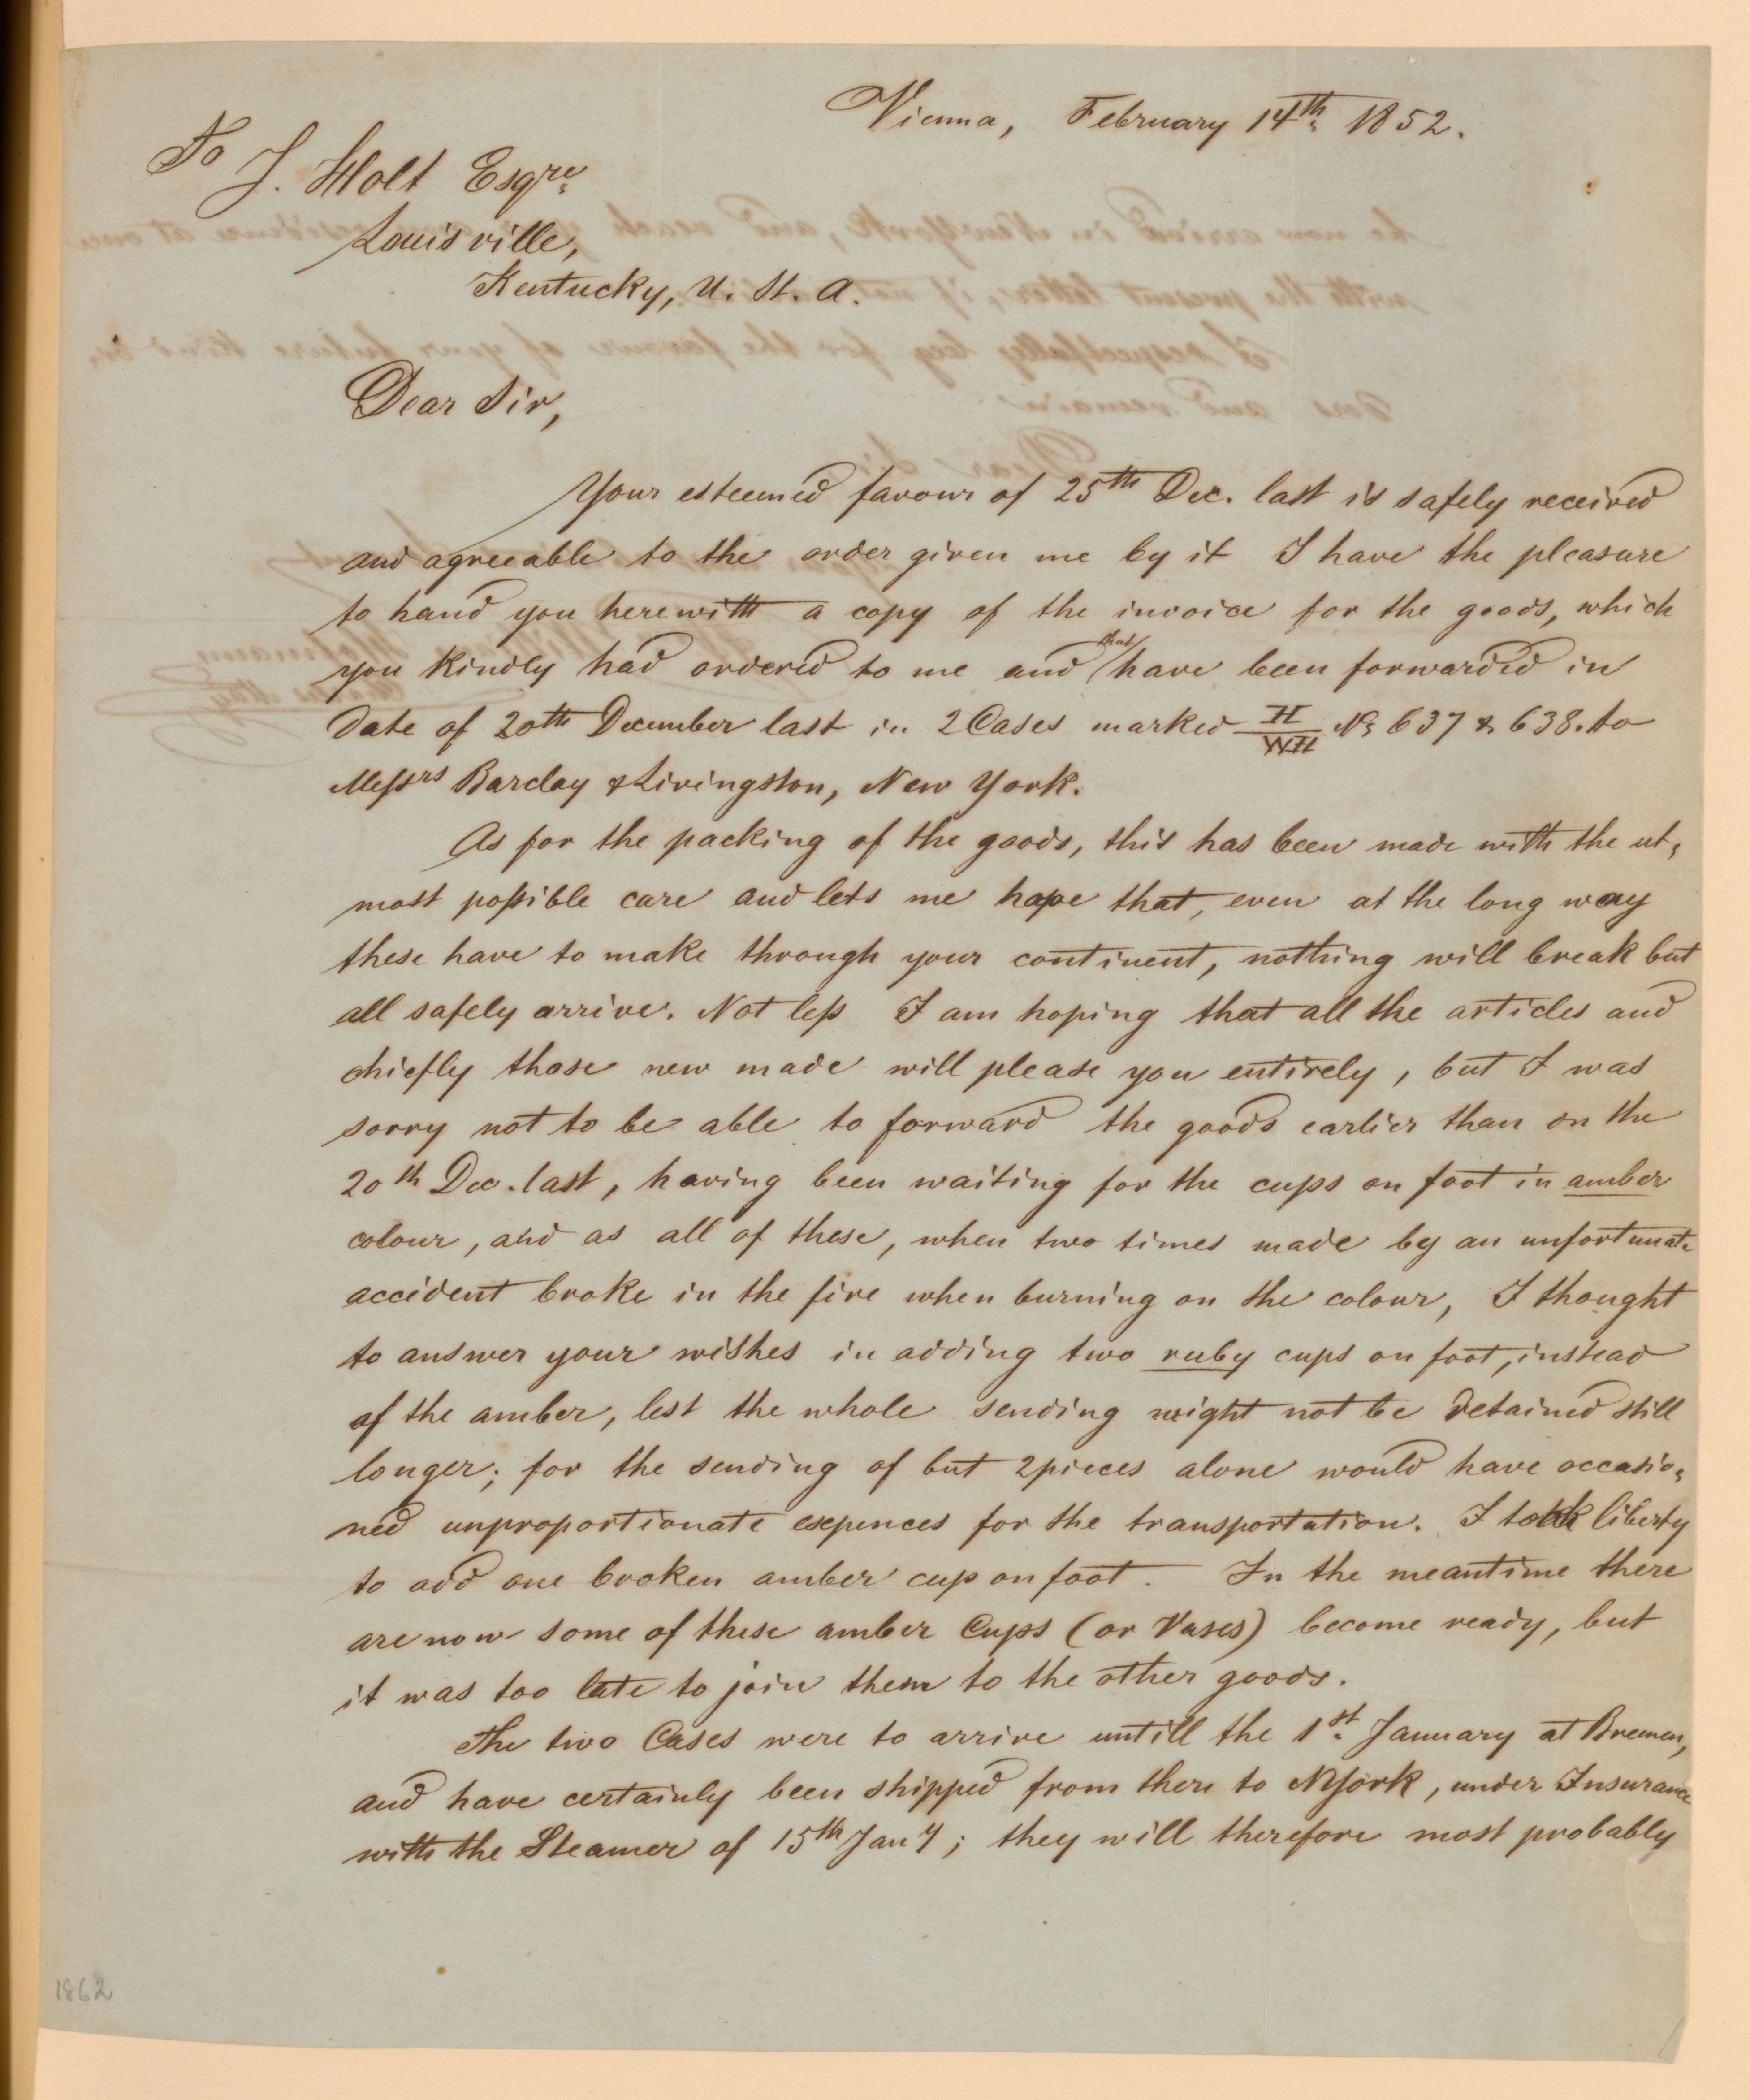 Vienna, February 14th 1852.
To
J. Holt Esqre
Louisville,
Kentucky, U. St. A.
Dear Sir,
Your esteemed favour of 25th Dec. last is safely received
and agreeable to the order given me by it I have the pleasure
to hand you herewith a copy of the invoice for the goods, which
you kindly had ordered to me and that have been forwarded in
date of 20th December last in 2 Cases marked H/WH No 637 & 638. to
Messrs Barclay & Livingston, New York.
As for the packing of the goods, this has been made with the ut-
most possible care and lets me hope that, even at the long way
these have to make through your continent, nothing will break but
all safely arrive. Not less I am hoping that all the articles and
chiefly those new made will please you entirely, but I was
sorry not to be able to forward the goods earlier than on the
20th Dec. last, having been waiting for the cups on foot in amber
colour, and as all of these, when two times made by an unfortunate
accident broke in the fire when burning on the colour, I thought
to answer your wishes in adding two ruby cups on foot, instead
of the amber, lest the whole sending might not be detained still
longer; for the sending of but 2 pieces alone would have occasio-
ned unproportionate expences for the transportation. I took liberty
to add one broken amber cup on foot. In the meantime there
are now some of these amber Cups (or Vases) become ready, but
it was too late to join them to the other goods.
The two Cases were to arrive untill the 1st January at Bremen,
and have certainly been shipped from there to NYork, under Insurance
with the Steamer of 15th Jany; they will therefore most probably
1862